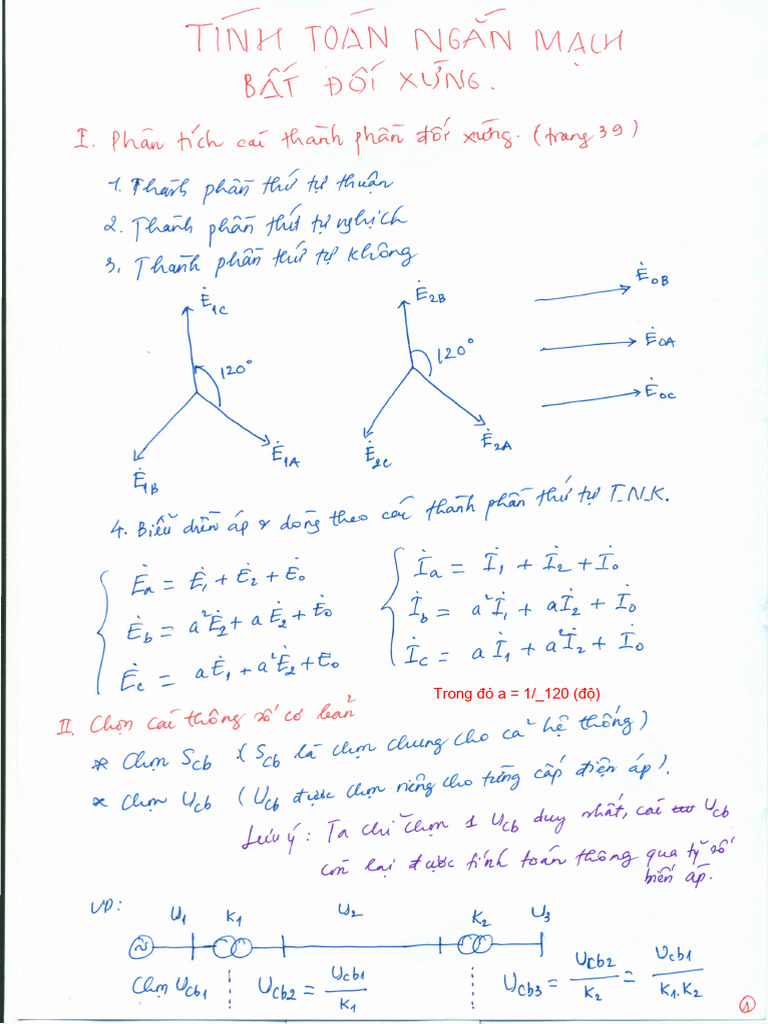 TÍNH TOÁN NGẮN MẠCH
BẤT ĐỐI XỨNG.
I. Phân tích các thành phần đối xứng. (trang 39)
1. Thành phần thứ tự thuận
2. Thành phần thứ tự nghịch
3. Thành phần thứ tự không
Ė1C
120°
Ė1A
Ė1B
Ė2B
120°
Ė2A
Ė2C
Ė0B
Ė0A
Ė0C
4. Biểu diễn áp & dòng theo các thành phần thứ tự T_N_K.
Ėa = Ė1 + Ė2 + Ė0
Ėb = a²Ė2 + aĖ2 + Ė0
Ėc = aĖ1 + a²Ė2 + E0
İa = İ1 + İ2 + İ0
İb = a²İ1 + aİ2 + İ0
İc = aİ1 + a²İ2 + İ0
Trong đó a = 1/_120 (độ)
II. Chọn các thông số cơ bản
* Chọn Scb (Scb là chọn chung cho cả hệ thống)
* Chọn Ucb (Ucb được chọn riêng cho từng cấp điện áp).
Lưu ý: Ta chỉ chọn 1 Ucb duy nhất, các Ucb
còn lại được tính toán thông qua tỷ số
biến áp.
VD:
U1 K1 U2 K2 U3
Chọn Ucb1
Ucb2 = Ucb1/K1
Ucb3 = Ucb2/K2 = Ucb1/K1.K2
1